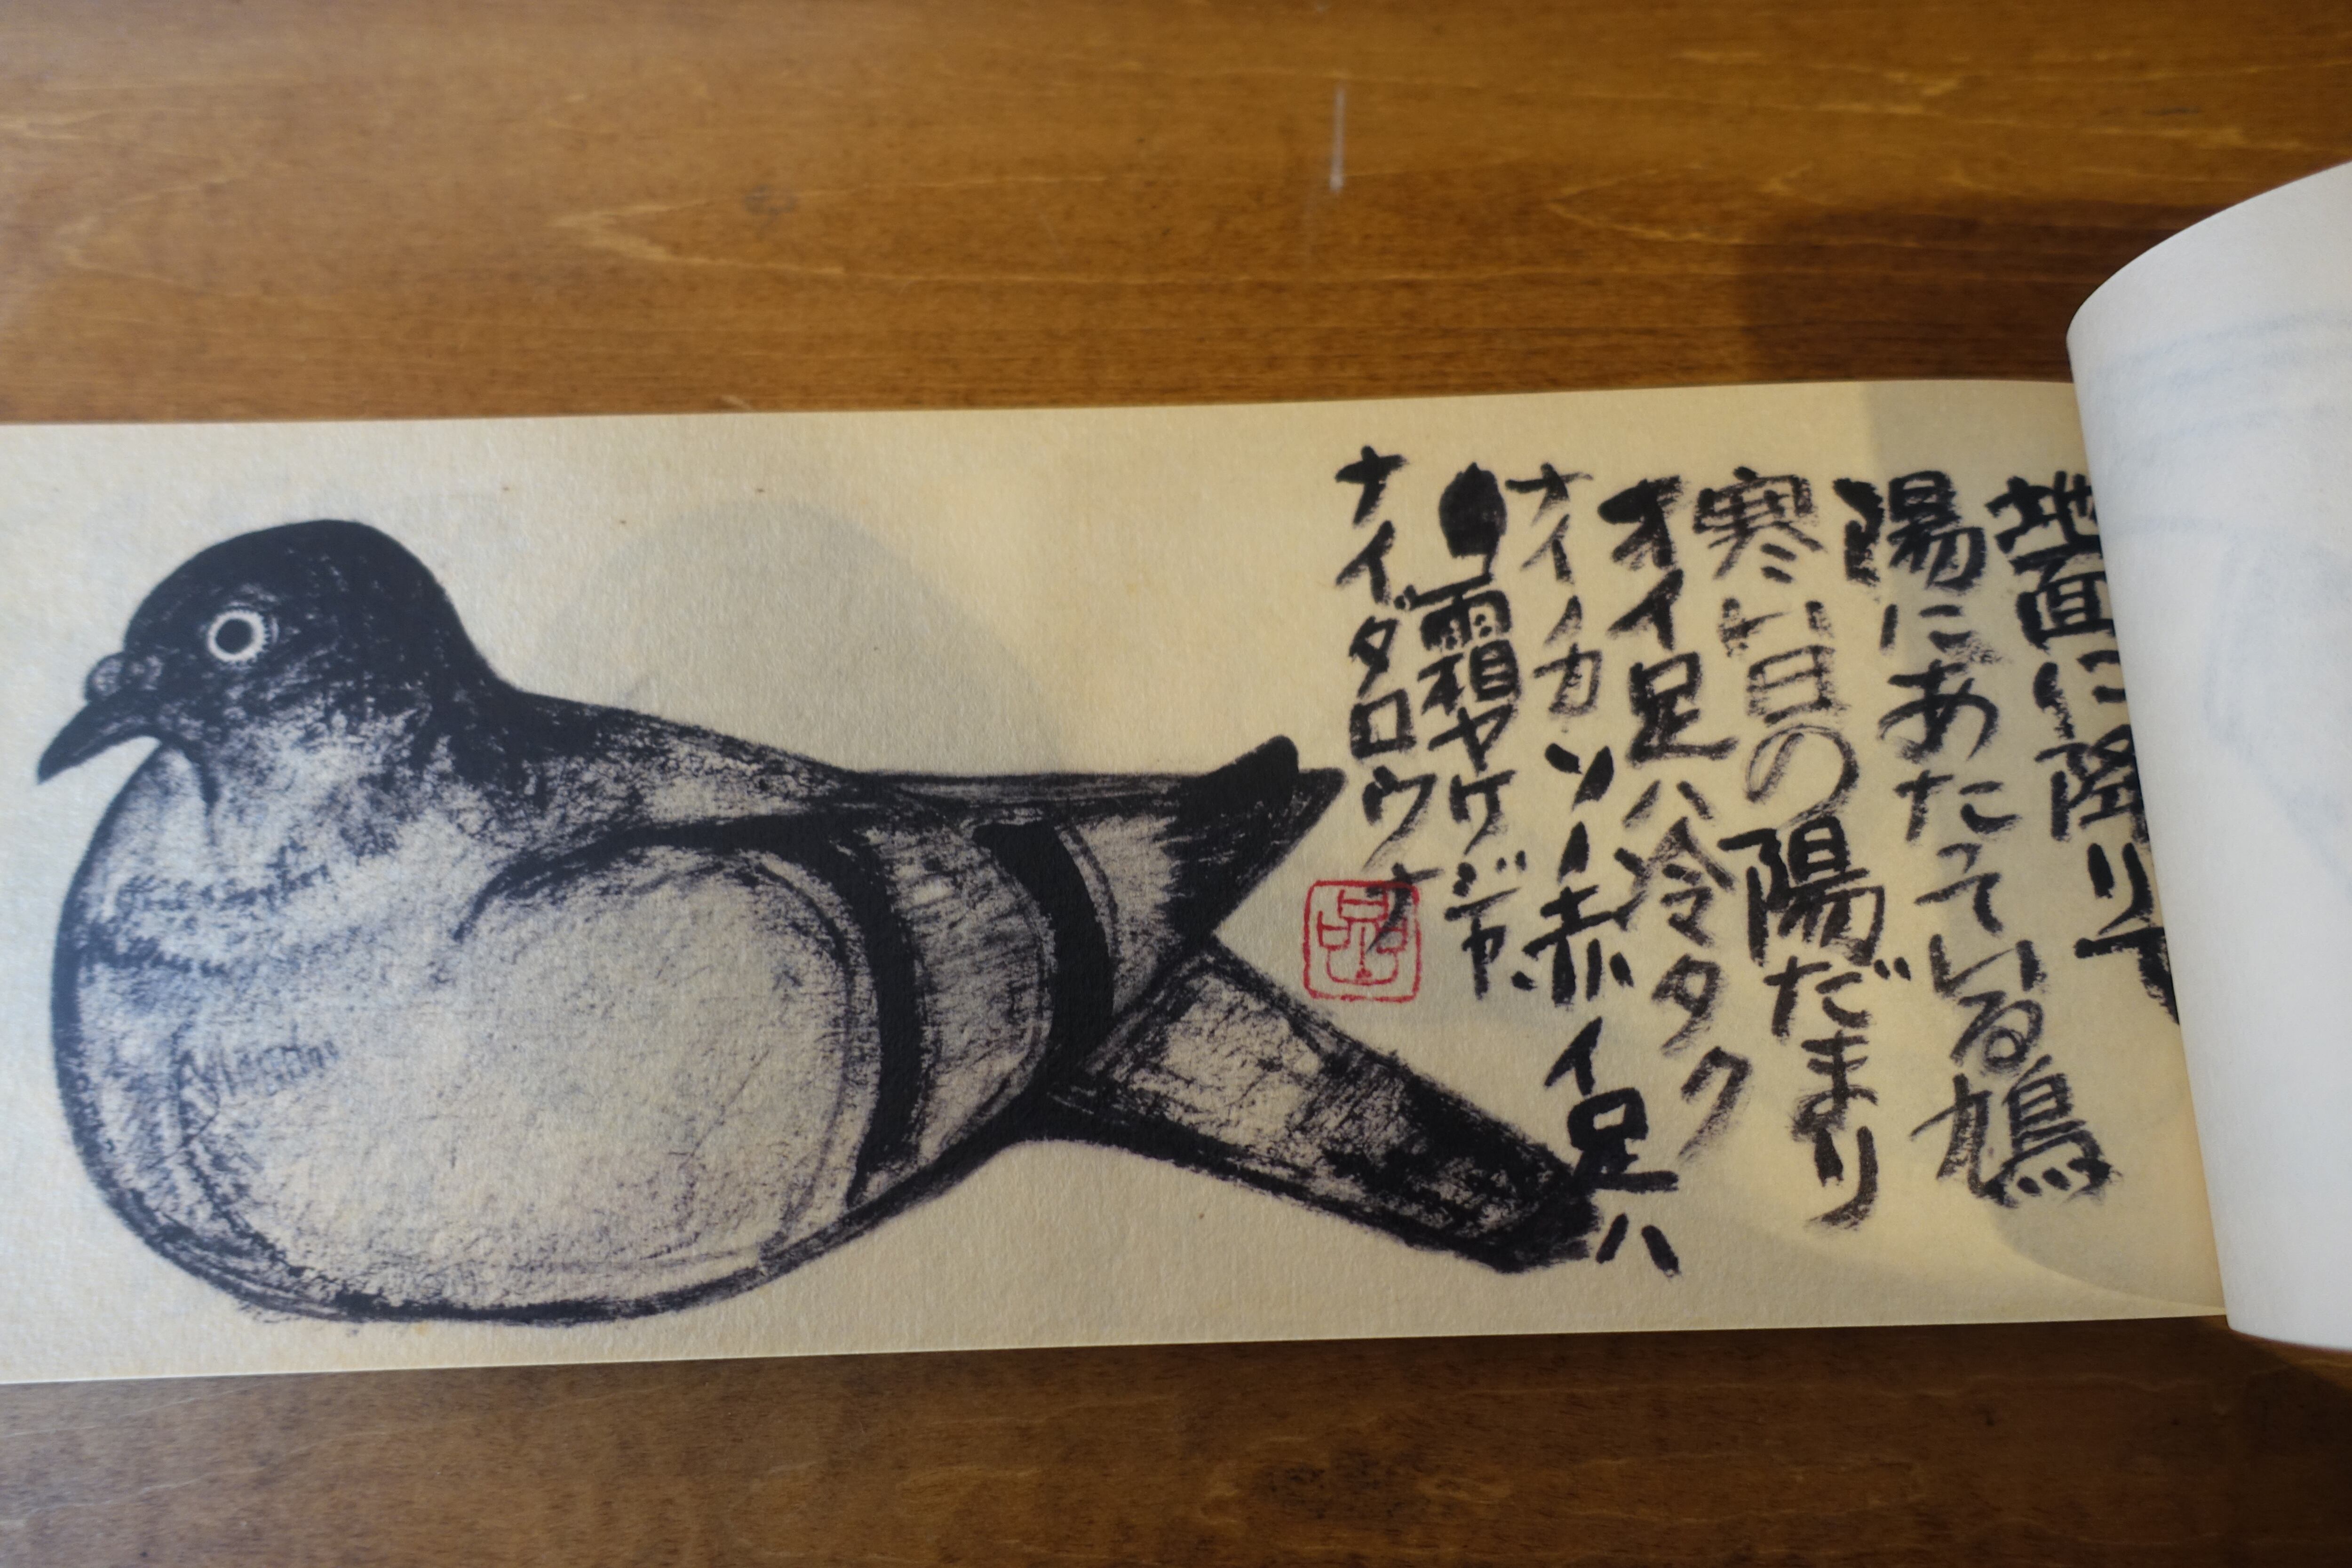 地面に降りて
陽にあたっている鳩
寒い日の陽だまり
オイ足ハ冷タク
ナイカソノ赤イ足ハ
霜ヤケジャ
ナイダロウナ